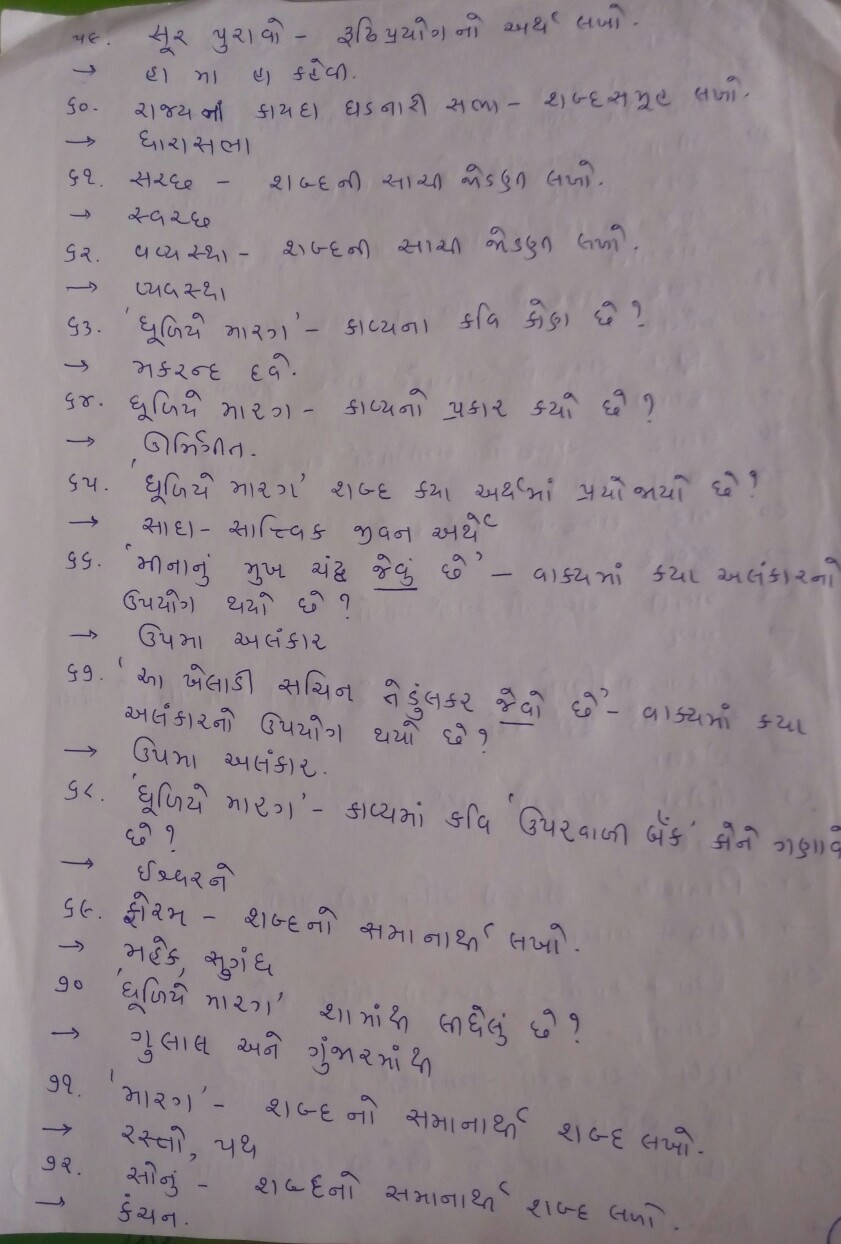 ૫૯. સૂર પુરાવો - રૂઢિપ્રયોગનો અર્થ લખો.
→ હા મા હા કહેવી.
૬૦. રાજ્યનાં કાયદા ઘડનારી સભા - શબ્દસમૂહ લખો.
→ ધારાસભા
૬૧. સરછ - શબ્દની સાચી જોડણી લખો.
→ સ્વચ્છ
૬૨. વવ્યસ્થા - શબ્દની સાચી જોડણી લખો.
→ વ્યવસ્થા
૬૩. 'ધૂળિયે મારગ' - કાવ્યના કવિ કોણ છે?
→ મકરન્દ દવે.
૬૪. ધૂળિયે મારગ - કાવ્યનો પ્રકાર કયો છે?
→ ઊર્મિગીત.
૬૫. 'ધૂળિયે મારગ' શબ્દ કયા અર્થમાં પ્રયોજાયો છે?
→ સાદા - સાત્ત્વિક જીવન અર્થે
૬૬. 'મીનાનું મુખ ચંદ્ર જેવું છે' - વાક્યમાં કયા અલંકારનો
ઉપયોગ થયો છે?
→ ઉપમા અલંકાર
૬૭. 'આ ખેલાડી સચિન તેડુંલકર જેવો છે' - વાક્યમાં કયા
અલંકારનો ઉપયોગ થયો છે?
→ ઉપમા અલંકાર.
૬૮. 'ધૂળિયે મારગ' - કાવ્યમાં કવિ 'ઉપરવાળી બેંક' કોને ગણાવે
છે?
→ ઈશ્વરને
૬૯. ફોરમ - શબ્દનો સમાનાર્થી લખો.
→ મહેક, સુગંધ
૭૦ 'ધૂળિયે મારગ' શામાંથી લીધેલું છે?
→ ગુલાલ અને ગુંજારમાંથી
૭૧. 'મારગ' - શબ્દનો સમાનાર્થી શબ્દ લખો.
→ રસ્તો, પથ
૭૨. સોનું - શબ્દનો સમાનાર્થી શબ્દ લખો.
→ કંચન.